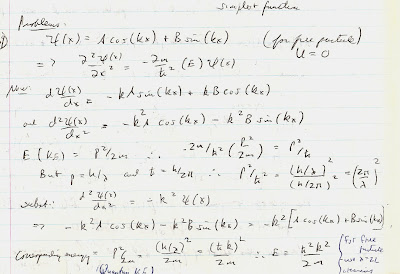 simplest function
Problems:
1) ψ(x) = A cos(kx) + B sin(kx) (for free particle)
=> ∂²ψ(x)/∂x² = -2m/ħ² (E) ψ(x) U = 0
Now: dψ(x)/dx = -kA sin(kx) + kB cos(kx)
and d²ψ(x)/dx² = -k²A cos(kx) - k²B sin(kx)
E (KE) = P²/2m ∴ -2m/ħ² (P²/2m) = P²/ħ
But p = h/λ and ħ = h/2π ∴ P²/ħ² = (h/λ)²/(h/2π)² = (2π/λ)²
subst: d²ψ(x)/dx² = -k² ψ(x)
=> -k²A cos(kx) - k²B sin(kx) = -k² [A cos(kx) + B sin(kx)]
Corresponding energy: P²/2m = (h/λ)²/2m = (ħk)²/2m ∴ E = ħ²k²/2m (For free particle
(Quantum KE)